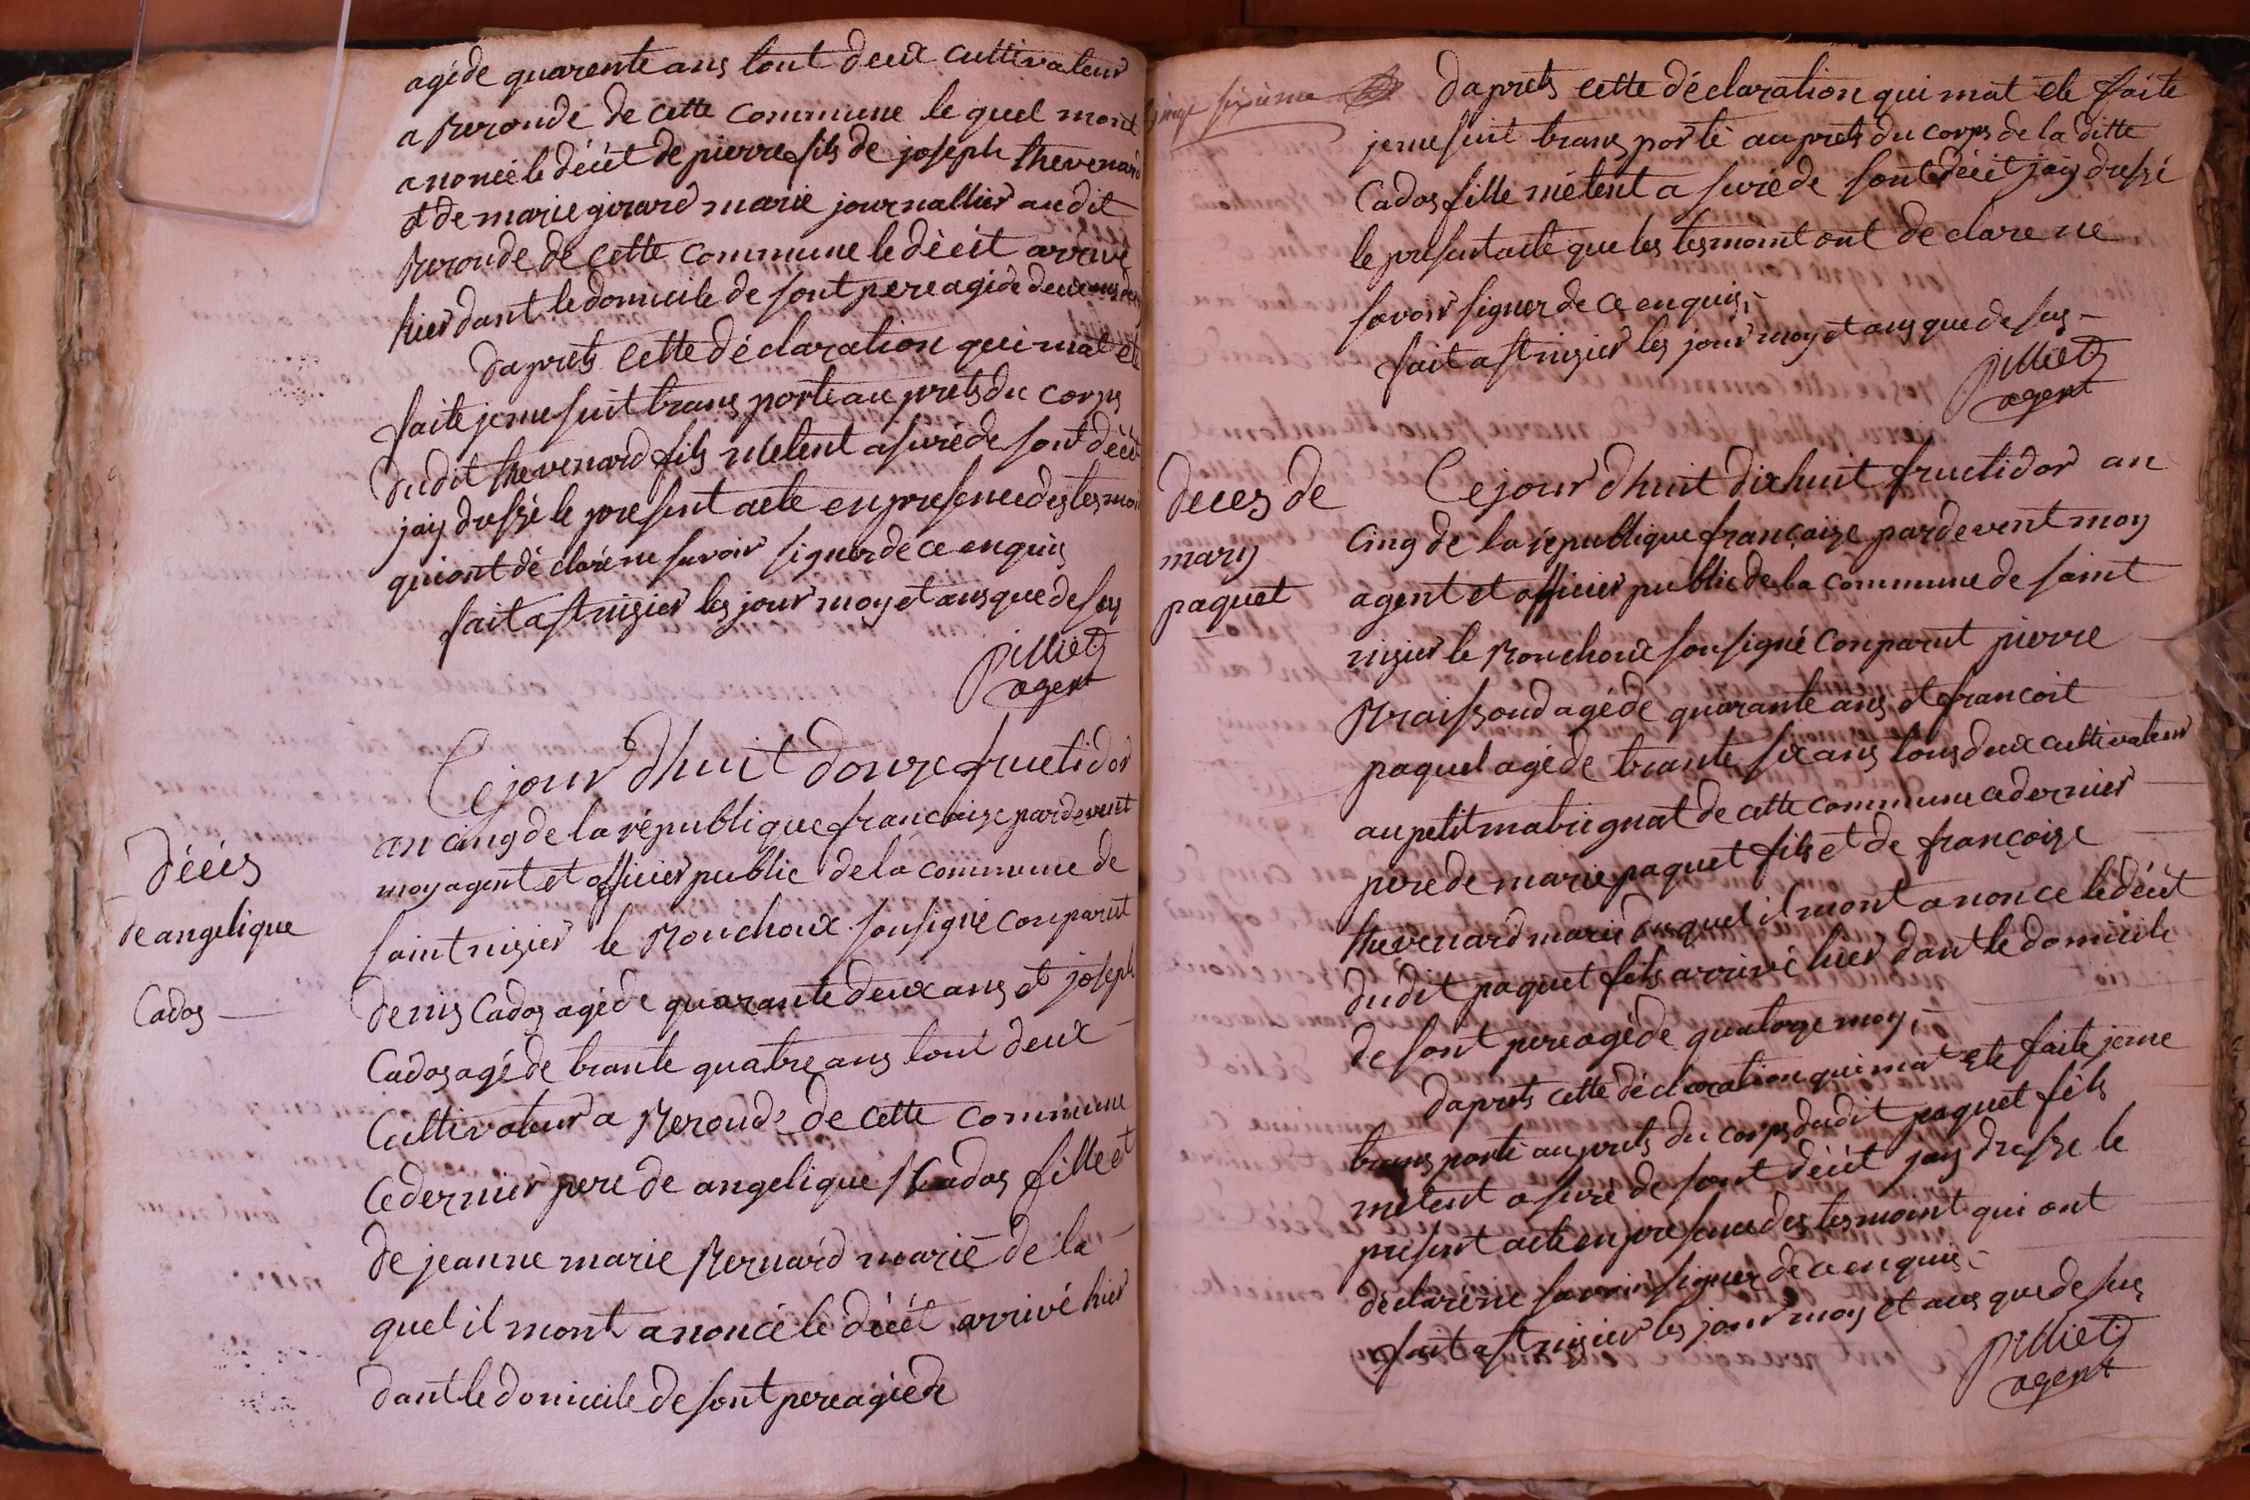 agéde quarente ans tout deux cultivateur
a Meronde de cette commune le quel mont
anoncé le décit de pierre fils de joseph thevenard
et de marie girard marie journallier audit
Meronde de cette commune le décit arrivé
hier dant le domicile de sont pere agéde deux ans
daprets cette déclaration qui mat eté
faite je me suit trans porté au prets du corps
dudit thevenard fils métent asuré de sont décit
jay dressé le present acte en presence des tesmoi
qui ont déclaré ne savoir signer de ce enquis
fait a st nizier les jour moy et ans que de sus
pilliet
agent
Décés
de angelique
Cados
Ce jour dhuit douze fructidor
an cinq de la république francaize pardevent
moy agent et officier public de la commune de
saint nizier le Bouchoux sousigné conparut
denis Cados agéde quarante deux ans et joseph
Cados agéde trante quatre ans tout deux
Cultivateur a Meronde de cette commune
Ce dernier pere de angelique Cados fille et
de jeanne marie Bernard marié de la
quel il mont anoncé le décit arrivé hier
dant le domicile de sont pere agéde
sixieme
daprets cette déclaration qui mat eté faite
je me suit trans porté au prets du corps de la ditte
Cados fille métent a suré de sont décit jay dressé
le present acte que les tesmoint ont declare ne
savoir signer de ce enquis
fait a st nizier les jour moy et ans que de sus
pilliet
agent
Deces de
mary
paquet
Ce jour dhuit dix huit fructidor an
Cinq de la république françaize pardevent moy
agent et officier public de la commune de saint
nizier le Bouchoux sousigné conparut pierre
agéde quarante ans et francoit
paquet agéde trante six ans tous deux cultivateur
au petit matrignat de cette commune ce dernier
pere de marie paquet fils et de françoize
thevenard marié duquel il mont anoncé le décit
dudit paquet fils arrivé hier dant le domicile
de sont pere agéde quatorze moy
daprets cette déclaration qui mat eté faite je me
trans porté au prets du corps dudit paquet fils
métent a suré de sont décit jay dressé le
présent acte en presence des tesmoint qui ont
déclaré ne savoir signer de ce enquis
fait a st nizier les jour moy et ans que de sus
pilliet
agent